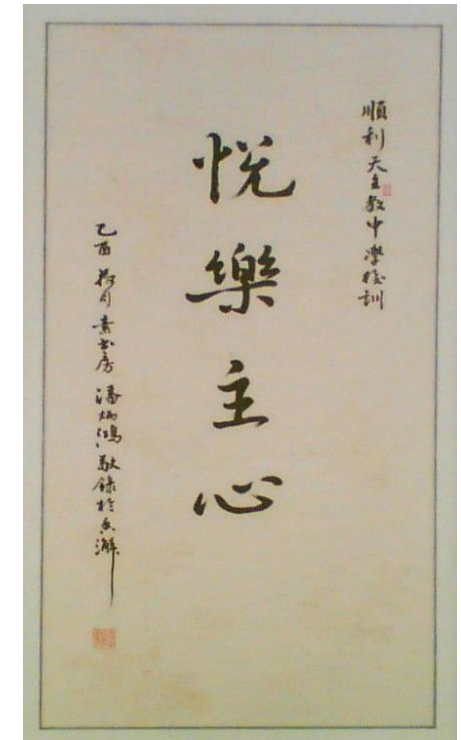 順利天主教中學校訓
悅樂主心
乙酉荷月素書房潘炳鴻敬錄於香澥